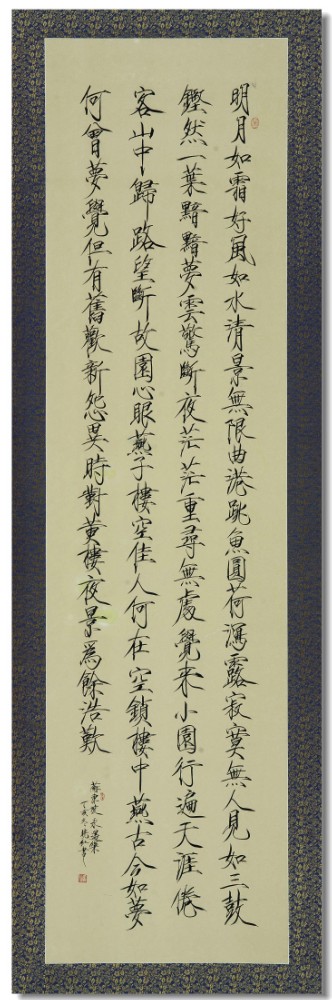 明月如霜好風如水清景無限曲港跳魚圓荷瀉露寂寞無人見如三鼓
鏗然一葉黯黯夢雲驚斷夜茫茫重尋無處覺來小園行遍天涯倦
客山中歸路望斷故園心眼燕子樓空佳人何在空鎖樓中燕古今如夢
何曾夢覺但有舊歡新怨異時對黃樓夜景爲餘浩歎
蘇東坡永遇樂